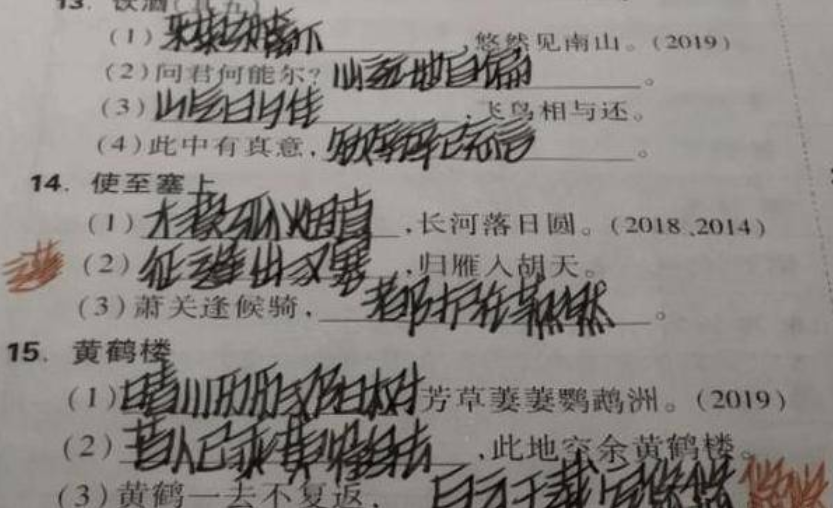 13. 饮酒(其五)
(1)采菊东篱下,悠然见南山。(2019)
(2)问君何能尔?心远地自偏。
(3)山气日夕佳,飞鸟相与还。
(4)此中有真意,欲辨已忘言。
14. 使至塞上
(1)大漠孤烟直,长河落日圆。(2018、2014)
(2)征蓬出汉塞,归雁入胡天。
蓬
(3)萧关逢候骑,都护在燕然。
15. 黄鹤楼
(1)晴川历历汉阳树芳草萋萋鹦鹉洲。(2019)
(2)昔人已乘黄鹤去,此地空余黄鹤楼。
(3)黄鹤一去不复返,白云千载空悠悠 悠悠